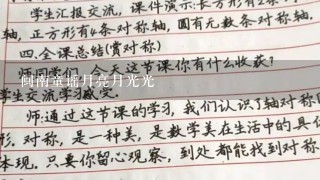 学生汇报交流，课件演示：长方形有2条
轴，正方形有4条对称轴，圆有无数条对称轴
四.全课总结(赏对称)
师:同学们，今天这节课你有什么收获?
闽南童谣月亮月光光
学生交流学习感受
师:通过这节课的学习，我们认识了轴对称图
形.对称，是一种美，是数学美在生活中的具体
体现.只要你留心观察，到处都能找到对称